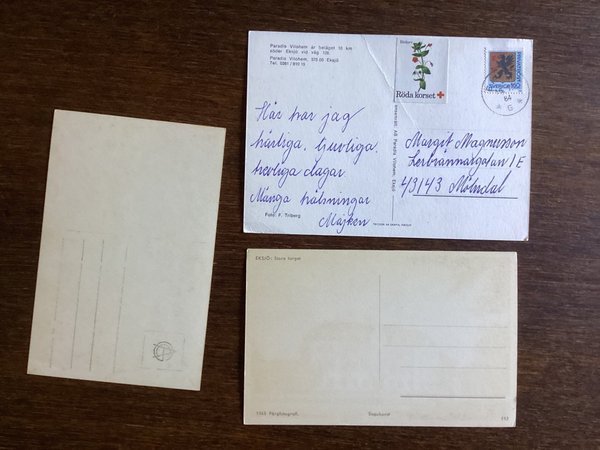 Paradis Vilohem är beläget 10 km
söder Eksjö vid väg 128
Paradis Vilohem, 575 00 Eksjö
Tel. 0381/810 15
Röda korset +
SVERIGE
84
G
Här har jag
härliga, ljuvliga,
trevliga dagar.
Många hälsningar
Majken
Foto: F. Triberg
Margit Magnusson
43143 Mölndal
EKSJÖ: Stora torget
Färgfotografi